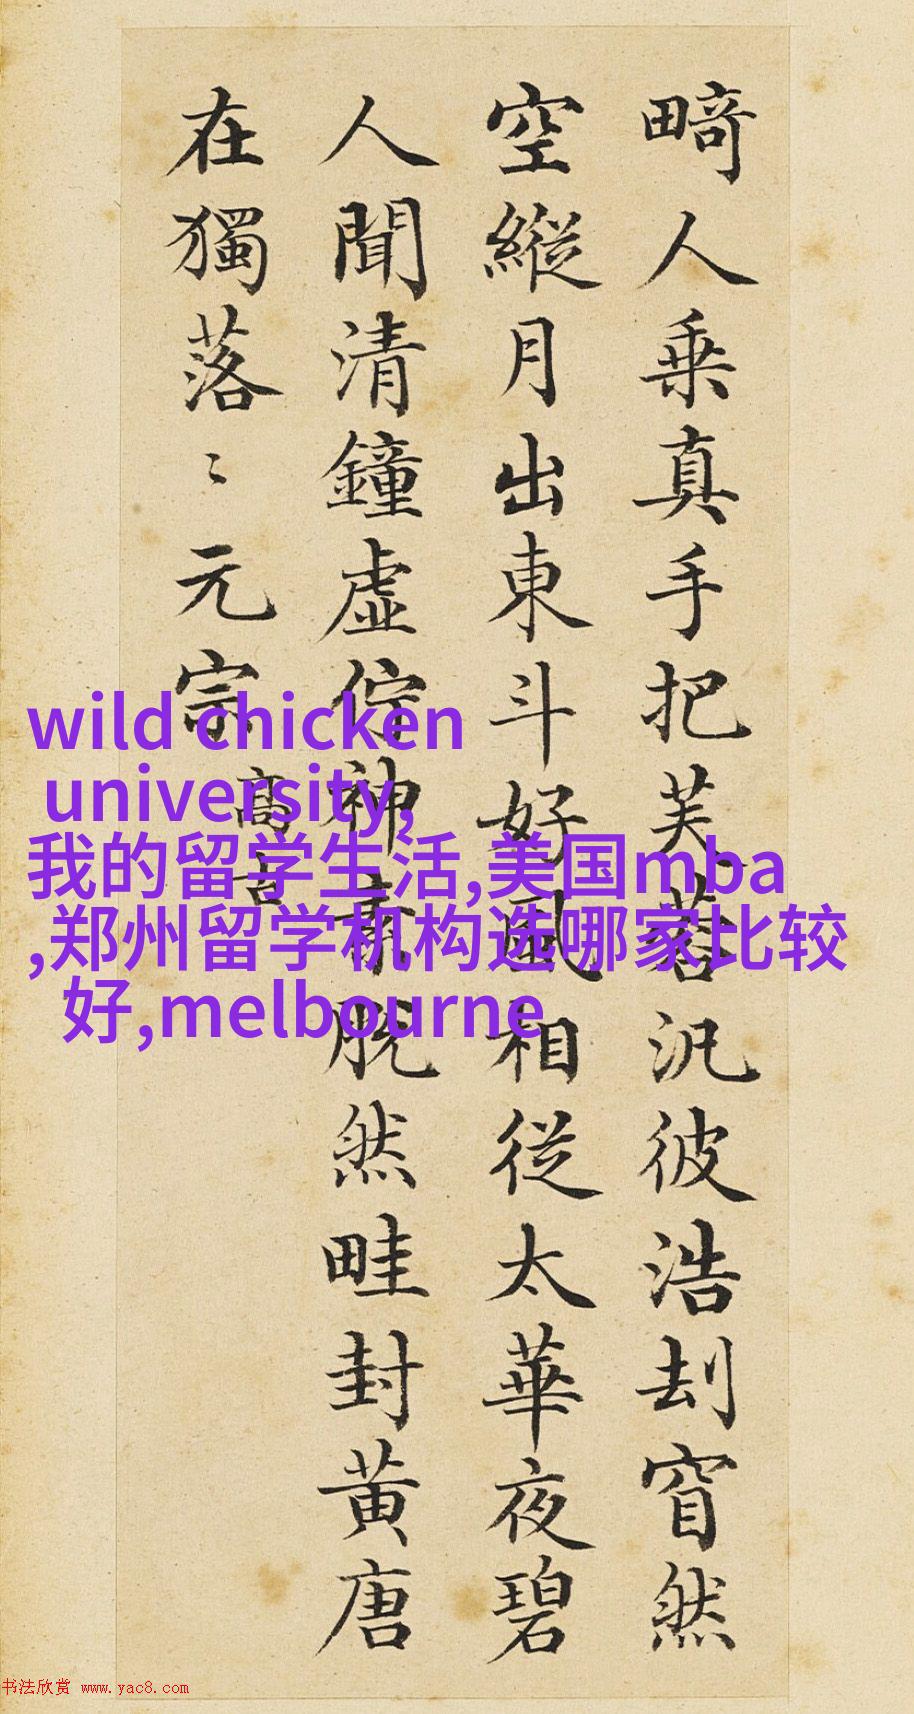 畸人乗真手把芙蓉汎彼浩刦窅然
空縱月出東斗好風相從太華夜碧
人聞清鐘虛佇神素脫然畦封黃唐
在獨落〻元宗
高古
wild chicken
university,
我的留学生活,美国mba
,郑州留学机构选哪家比较
好,melbourne
书法欣赏 www.yac8.com